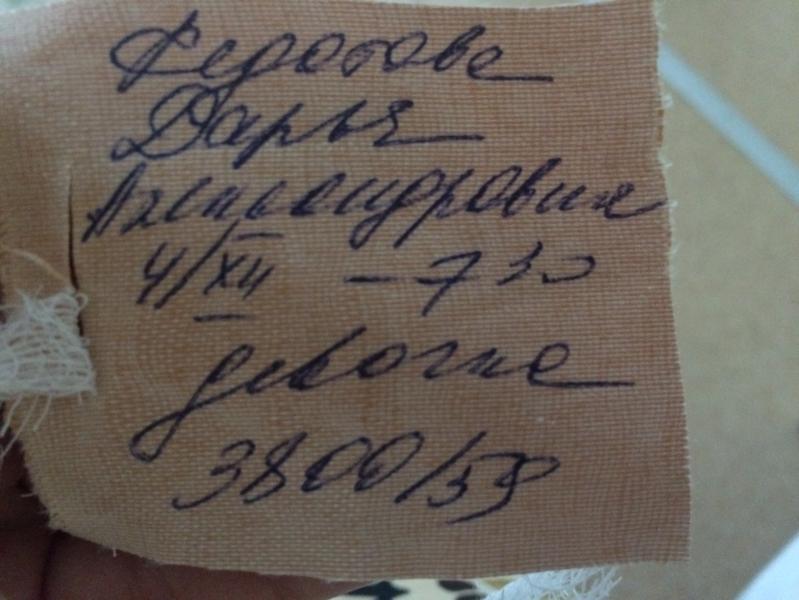 Федотова
Дарья
Александровна
4/XII – 7 30
девочка
3800/59